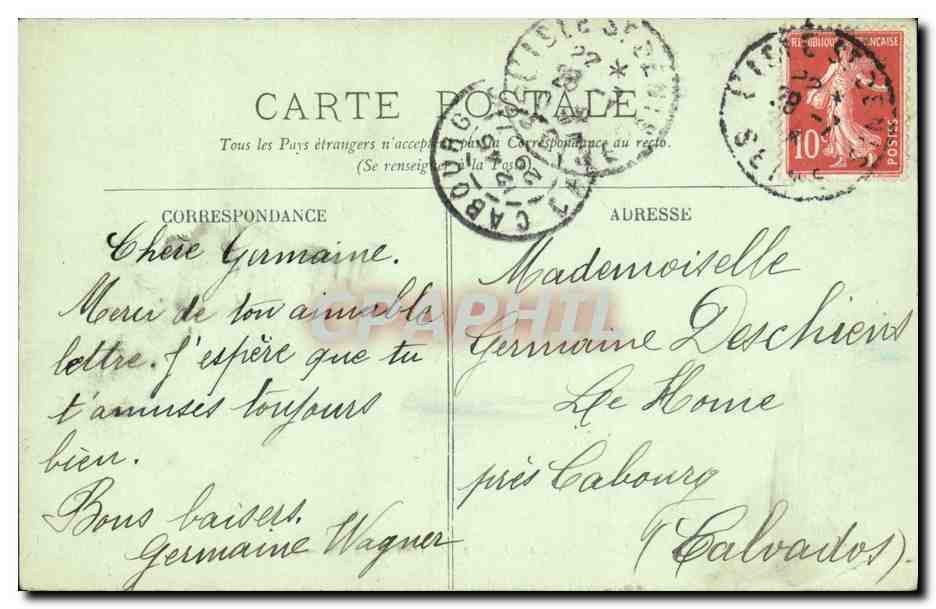 CARTE POSTALE
Tous les Pays étrangers n'acceptent pas la Correspondance au recto.
(Se renseigner à la Poste)
CORRESPONDANCE
Chère Germaine.
Merci de ton aimable
lettre. J'espère que tu
t'amuses toujours
bien.
Bons baisers.
Germaine Wagner
ADRESSE
Mademoiselle
Germaine Deschiens
Le Home
près Cabourg
(Calvados).
REPUBLIQUE FRANÇAISE
10
POSTES
L'ISLE ST DENIS
SEINE
CABOURG
CPAPHIL